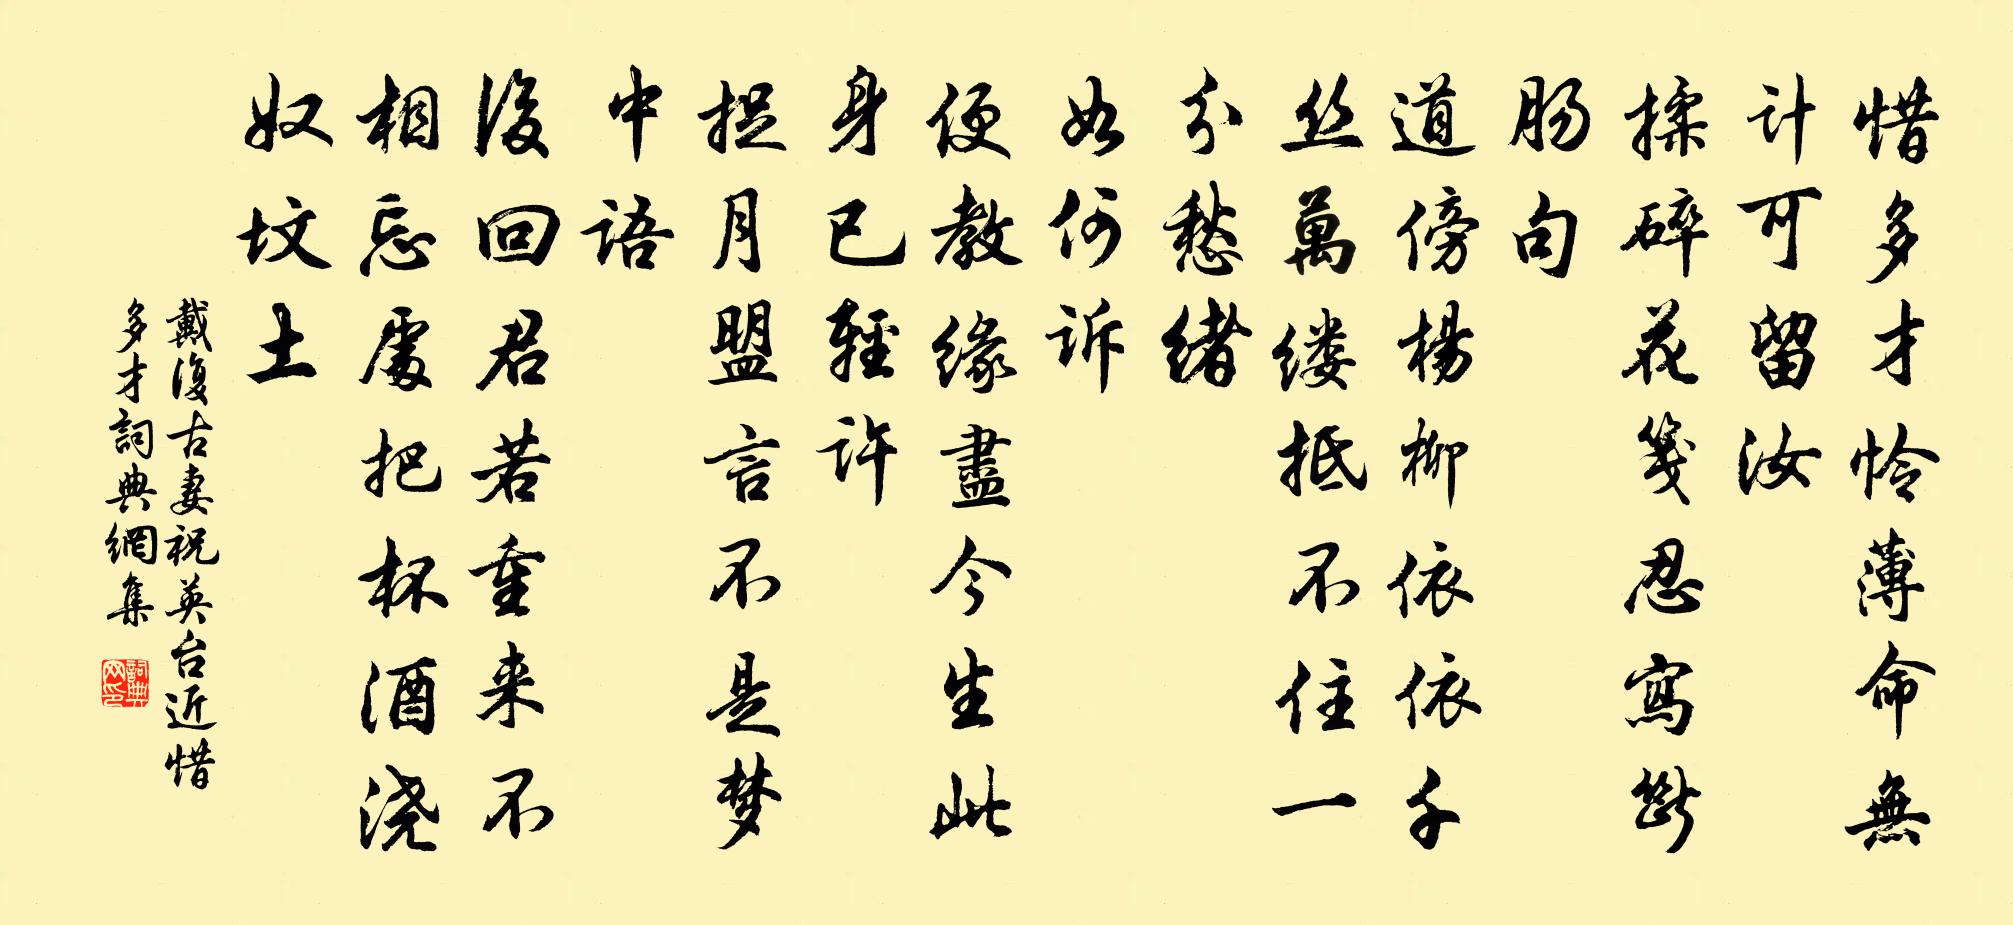 惜多才怜薄命無
計可留汝
揉碎花箋忍寫斷
肠句
道傍楊柳依依千
丝萬缕抵不住一
分愁緒
如何诉
便教緣盡今生此
身已輕許
捉月盟言不是梦
中語
後回君若重来不
相忘處把杯酒浇
奴坟土
戴復古妻祝英台近惜
多才詞典網集
詞典
网印